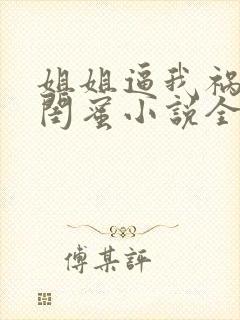 姐姐逼我祸
闺蜜小说全
傅某评